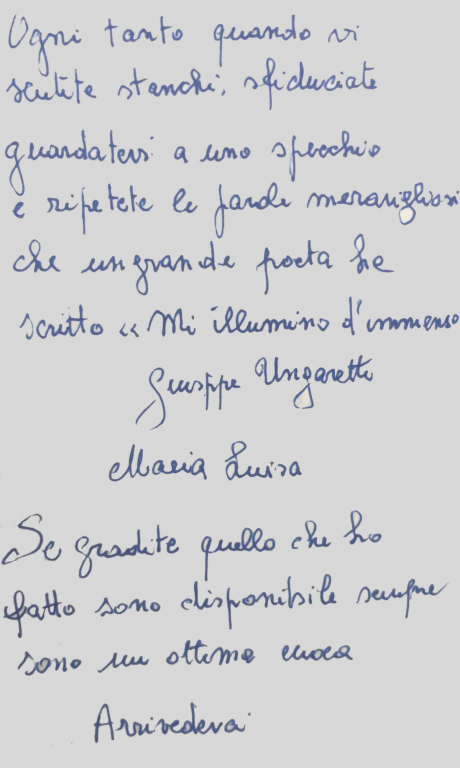 Ogni tanto quando vi
sentite stanchi, sfiduciate
guardatevi a uno specchio
e ripetete le parole meravigliosi
che un grande poeta ha
scritto « Mi illumino d'immenso
Giuseppe Ungaretti
Maria Luisa
Se gradite quello che ho
fatto sono disponibile sempre
sono un ottima cuoca
Arrivederci